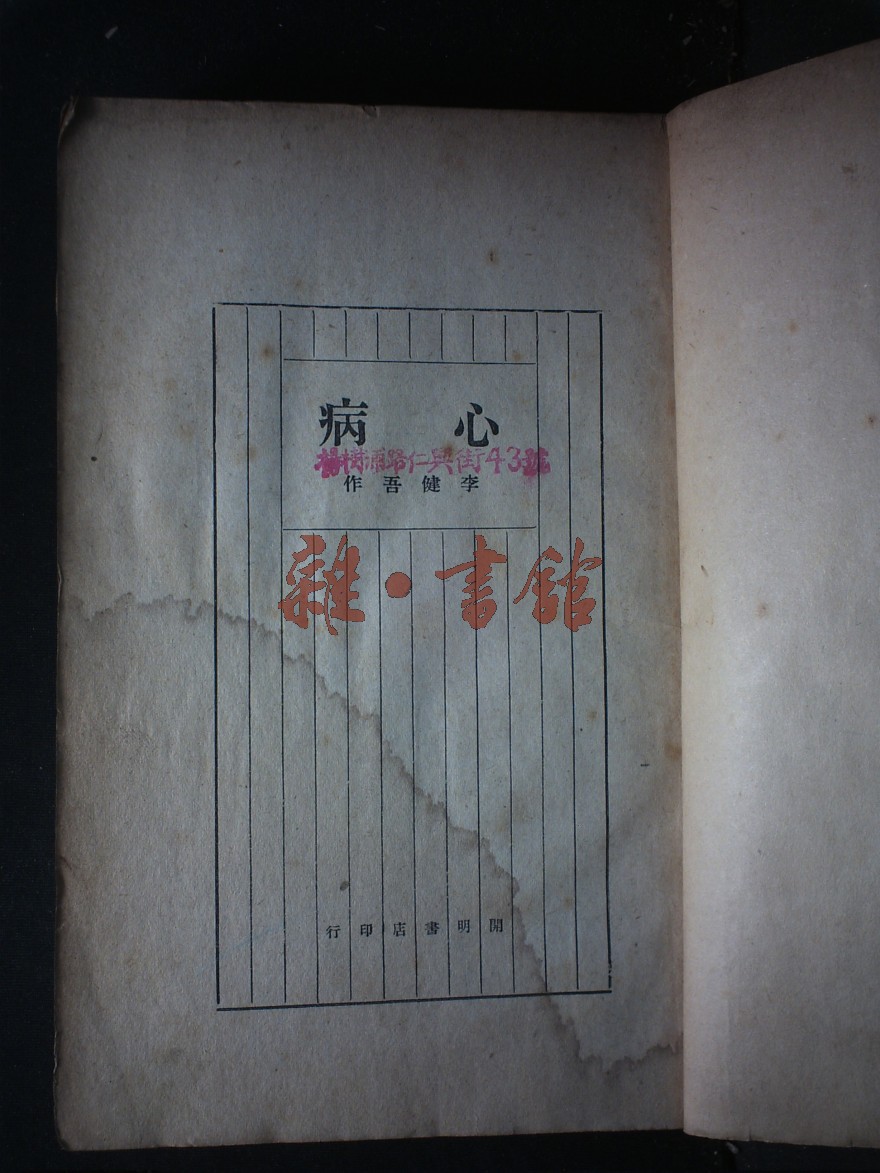 心病
楊樹浦路仁興街43號
李健吾作
雜·書館
開明書店印行